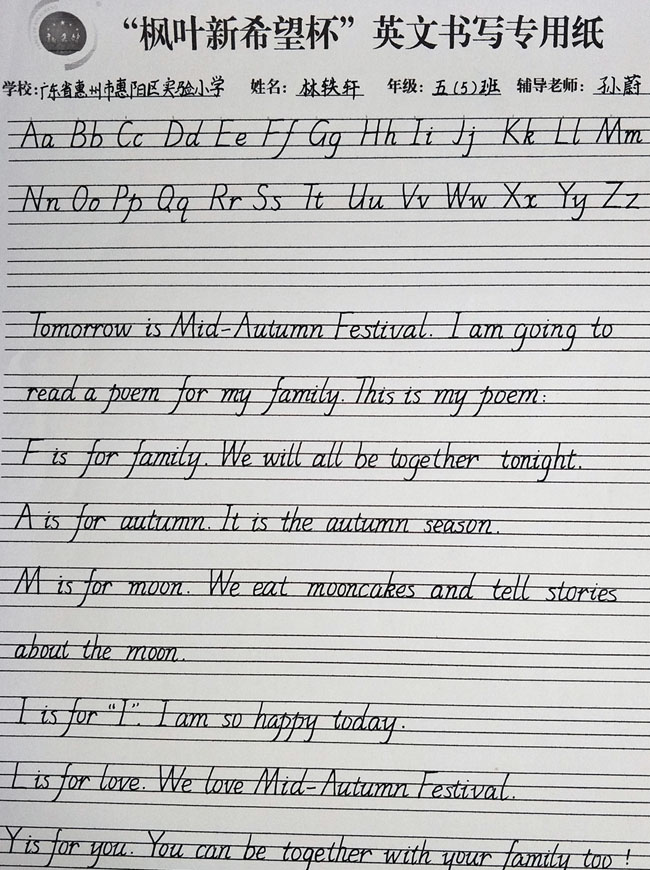 “枫叶新希望杯”英文书写专用纸
学校:广东省惠州市惠阳区实验小学 姓名:林轶轩 年级:五(5)班 辅导老师:孙蔚
Aa Bb Cc Dd Ee Ff Gg Hh Ii Jj Kk Ll Mm
Nn Oo Pp Qq Rr Ss Tt Uu Vv Ww Xx Yy Zz
Tomorrow is Mid-Autumn Festival. I am going to
read a poem for my family. This is my poem:
F is for family. We will all be together tonight.
A is for autumn. It is the autumn season.
M is for moon. We eat mooncakes and tell stories
about the moon.
I is for “I”. I am so happy today.
L is for love. We love Mid-Autumn Festival.
Y is for you. You can be together with your family too!